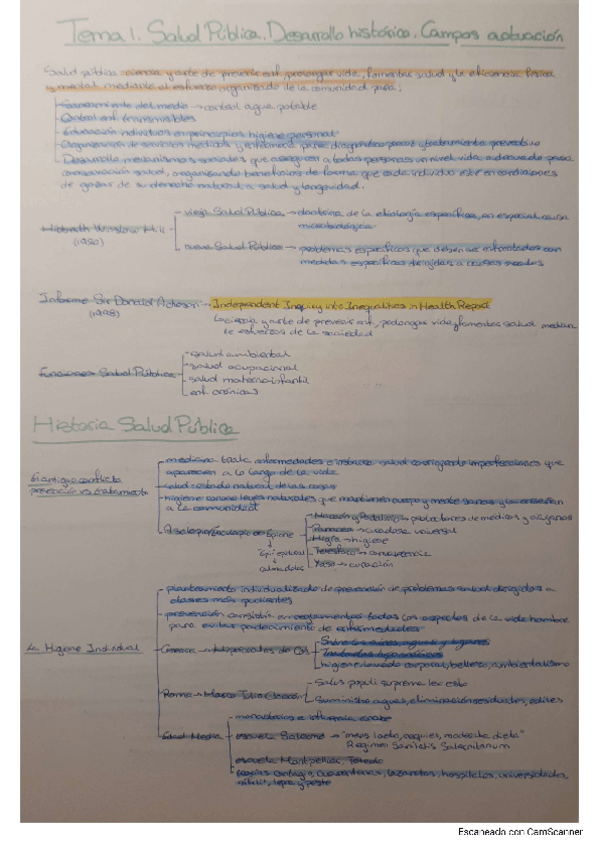 Tema 1. Salud Pública. Desarrollo histórico. Campos actuación
Salud pública: ciencia y arte de prevenir enf, prolongar vida, fomentar salud y la eficiencia física
y mental mediante el esfuerzo organizado de la comunidad para:
Saneamiento del medio → control agua potable
Control enf. transmisibles
Educación individuos en principios higiene personal
Organización de servicios médicos y enfermería para diagnóstico precoz y tratamiento preventivo
Desarrollo mecanismos sociales que aseguren a todas personas un nivel vida adecuado para
conservación salud, organizando beneficios de forma que cada individuo esté en condiciones
de gozar de su derecho natural a salud y longevidad.
vieja Salud Pública → doctrina de la etiología específica, en especial causa
microbiológica
Winslow Hill
(1920)
nueva Salud Pública → problemas específicos que deben ser enfrentados con
medidas específicas dirigidas a causas
Informe Sir Donald Acheson → Independent Inquiry into Inequalities in Health Report
(1998)
la ciencia y arte de prevenir enf, prolongar vida y fomentar salud median
te esfuerzos de la sociedad
salud ambiental
salud ocupacional
Funciones Salud Pública
salud maternoinfantil
enf. crónicas
Historia Salud Pública
medicina trata enfermedades e instaura salud corrigiendo imperfecciones que
aparecen a lo largo de la vida
El antiguo conflicto
prevención vs tratamiento
salud estado natural de las cosas
higiene conoce leyes naturales que mantienen cuerpo y mente sanos y las enseñan
a la comunidad
Asclepio/Esculapio Epione
→ productores de médicos y cirujanos
Panacea → curadora universal
Higia → higiene
Telesforo → convalecencia
Yaso → curación
planteamiento individualizado de prevención de problemas salud dirigidos a
clases más pudientes
prevención consistía en reglamentar todos los aspectos de la vida hombre
para evitar padecimiento de enfermedades
La Higiene Individual
Grecia → Hipócrates de Cos
Sobre los aires, aguas y lugares
Tratados hipocráticos
higiene: lavado corporal, belleza, ambientalismo
Salus populi suprema lex esto
Roma → Marco Tulio Cicerón
Suministro aguas, eliminación residuos, ediles
monasterios e influencia árabe
Edad Media
escuela Salerno → "mens laeta, requies, moderata dieta"
Regimen Sanitatis Salernitanum
escuela Montpellier, Toledo
contagio, cuarentenas, lazaretos, hospitales, universidades
sífilis, lepra y peste
Escaneado con CamScanner